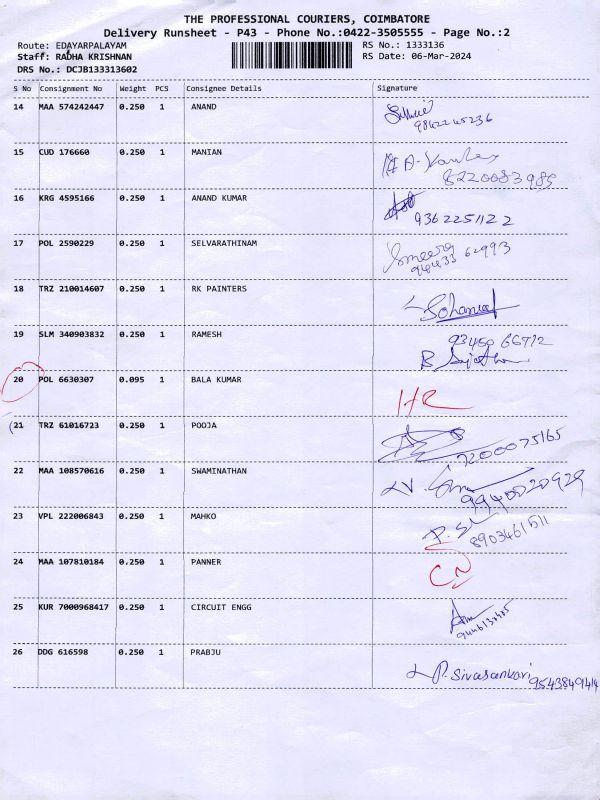 THE PROFESSIONAL COURIERS, COIMBATORE
Delivery Runsheet - P43 - Phone No.:0422-3505555 - Page No.:2
Route: EDAYARPALAYAM RS No.: 1333136
Staff: RADHA KRISHNAN RS Date: 06-Mar-2024
DRS No.: DCJB133313602
S No Consignment No Weight PCS Consignee Details Signature
14 MAA 574242447 0.250 1 ANAND
9842245236
15 CUD 176660 0.250 1 MANIAN
8220083985
16 KRG 4595166 0.250 1 ANAND KUMAR
9362251122
17 POL 2590229 0.250 1 SELVARATHINAM
94433 62993
18 TRZ 210014607 0.250 1 RK PAINTERS
19 SLM 340903832 0.250 1 RAMESH
93450 66712
20 POL 6630307 0.095 1 BALA KUMAR
HR
21 TRZ 61016723 0.250 1 POOJA
7200075165
22 MAA 108570616 0.250 1 SWAMINATHAN
9940020929
23 VPL 222006843 0.250 1 MAHKO
8903461511
24 MAA 107810184 0.250 1 PANNER
CN
25 KUR 7000968417 0.250 1 CIRCUIT ENGG
26 DDG 616598 0.250 1 PRABJU
P. Sivasankari 9543849414